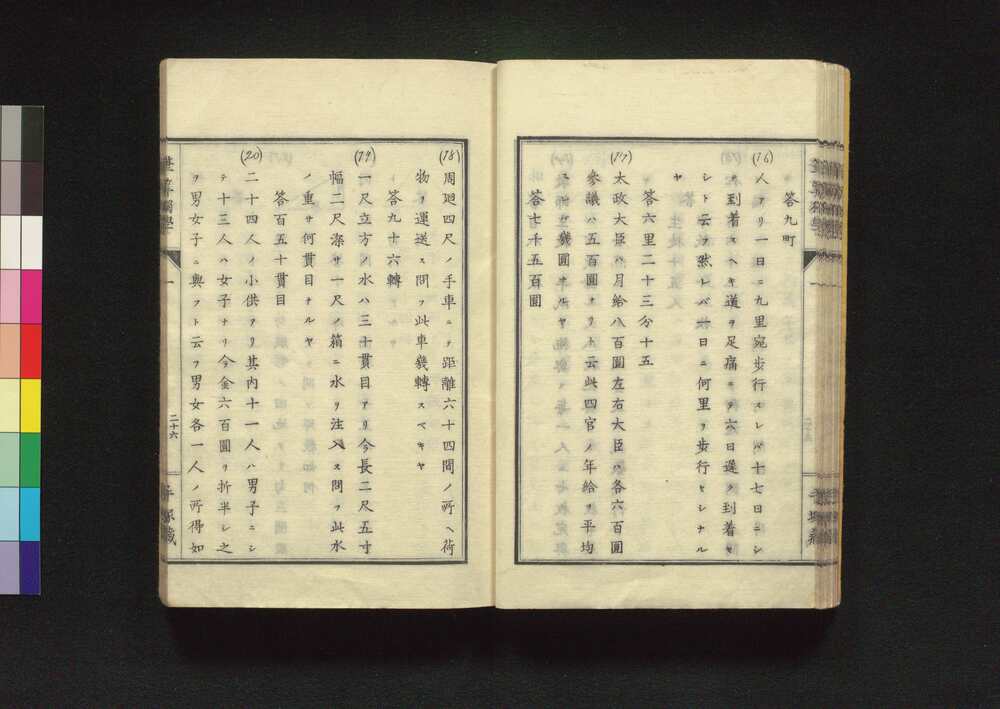 答九町
(16) 人アリ一日ニ九里宛歩行スレバ十七日ニシ
テ到着スヘキ道ヲ足痛ニテ六日遲ク到着セ
シト云フ然レバ一日ニ何里ヲ歩行セシナル
ヤ
答六里二十三分十五
(17) 太政大臣ハ月給八百圓左右大臣ハ各六百圓
參議ハ五百圓ナリト云此四官ノ年給ヲ平均
スレバ幾圓ナルヤ
答七千五百圓
(18) 周廻四尺ノ手車ニテ距離六十四間ノ所ヘ荷
物ヲ運送ス問フ此車幾轉スベキヤ
答九十六轉
(19) 一尺立方ノ水ハ三十貫目アリ今長二尺五寸
幅二尺深サ一尺ノ箱ニ水ヲ注入ス問フ此水
ノ重サ何貫目ナルヤ
答百五十貫目
(20) 二十四人ノ小供アリ其内十一人ハ男子ニシ
テ十三人ハ女子ナリ今金六百圓ヲ折半シ之
ヲ男女子ニ與フト云フ男女各一人ノ所得如
一
二十六